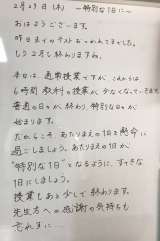 2月29日(木) 〜特別な1日に〜
おはようございます。
昨日までのテストおつかれさまでした。
もう2月も終わりますね。
今日は、通常授業ですが、これからは
6時間 教科の授業が少なくなっていきます。
普通の日々が終わり、特別な日々が
始まります。
だからこそ、あたりまえの1日を懸命に
過ごしましょう。あたりまえの1日が
"特別な1日"となるように、すてきな
1日にしましょう。
授業もあと少しで終わります。
先生方への感謝の気持ちも
忘れずに…